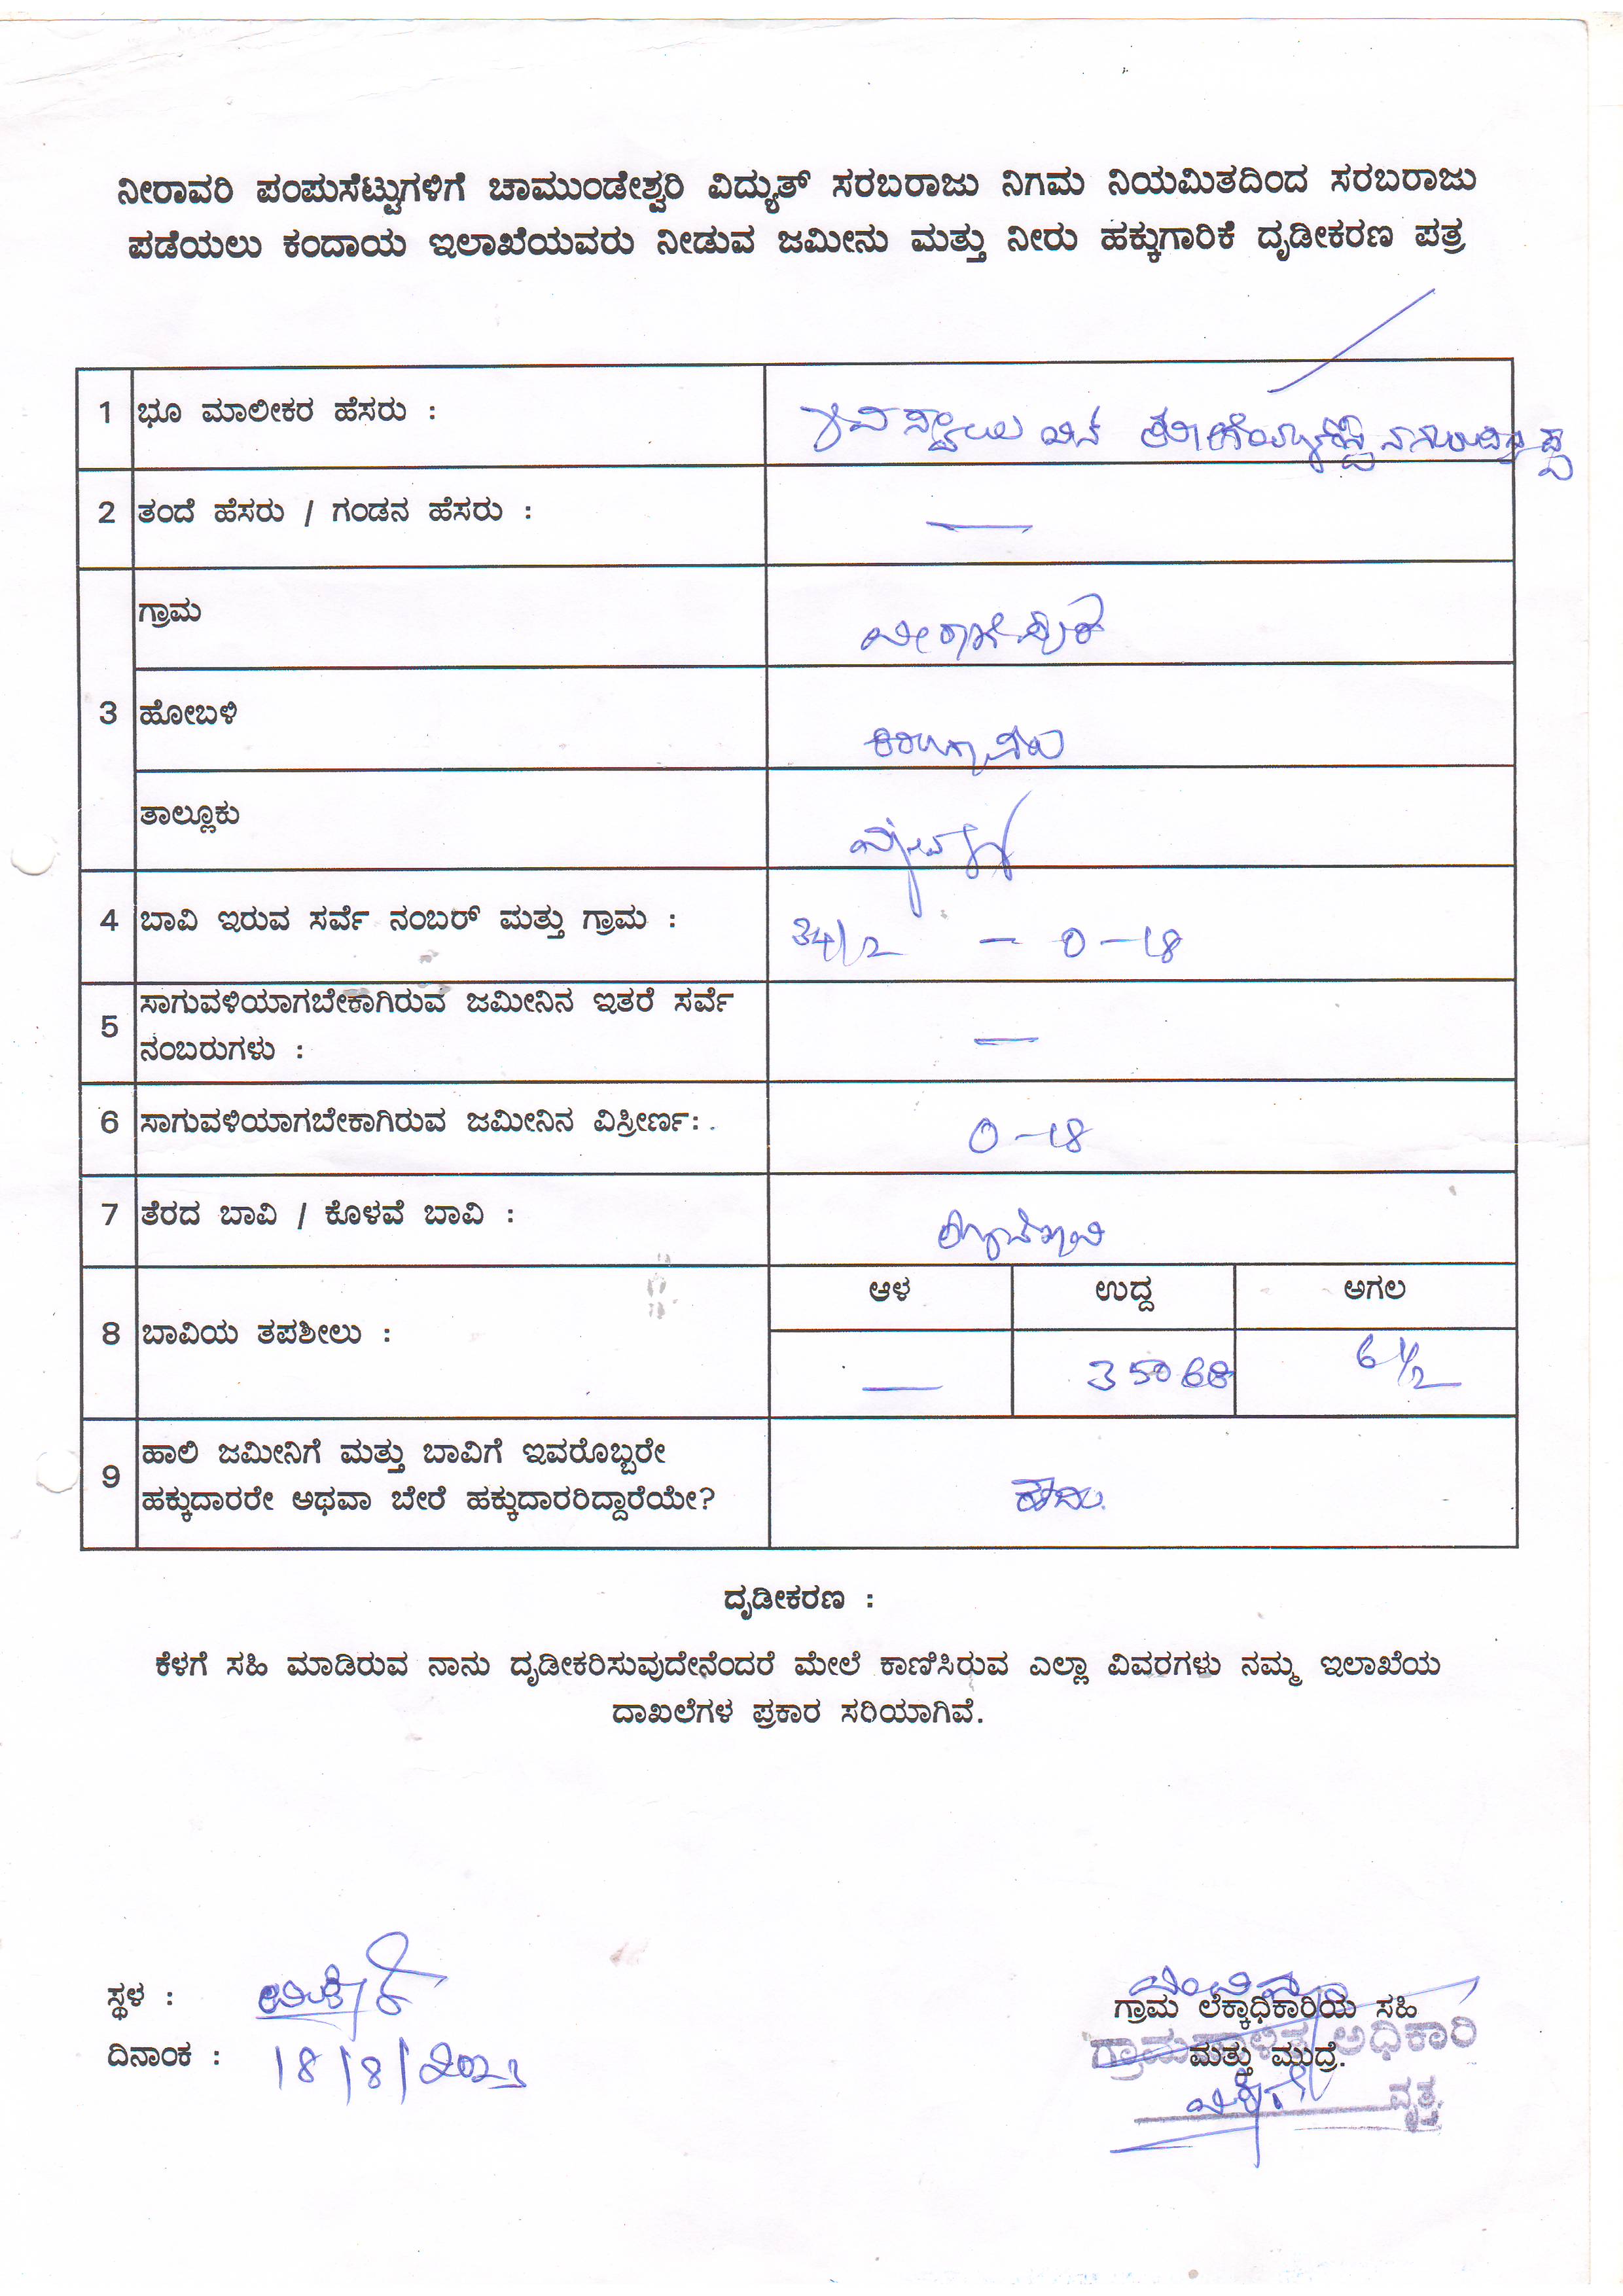 ನೀರಾವರಿ ಪಂಪುಸೆಟ್ಟುಗಳಿಗೆ ಚಾಮುಂಡೇಶ್ವರಿ ವಿದ್ಯುತ್ ಸರಬರಾಜು ನಿಗಮ ನಿಯಮಿತದಿಂದ ಸರಬರಾಜು
ಪಡೆಯಲು ಕಂದಾಯ ಇಲಾಖೆಯವರು ನೀಡುವ ಜಮೀನು ಮತ್ತು ನೀರು ಹಕ್ಕುಗಾರಿಕೆ ದೃಡೀಕರಣ ಪತ್ರ
1 ಭೂ ಮಾಲೀಕರ ಹೆಸರು :
2 ತಂದೆ ಹೆಸರು / ಗಂಡನ ಹೆಸರು : —
ಗ್ರಾಮ
3 ಹೋಬಳಿ
ತಾಲ್ಲೂಕು
4 ಬಾವಿ ಇರುವ ಸರ್ವೆ ನಂಬರ್ ಮತ್ತು ಗ್ರಾಮ : 34/2 — 0-18
5 ಸಾಗುವಳಿಯಾಗಬೇಕಾಗಿರುವ ಜಮೀನಿನ ಇತರೆ ಸರ್ವೆ
ನಂಬರುಗಳು : —
6 ಸಾಗುವಳಿಯಾಗಬೇಕಾಗಿರುವ ಜಮೀನಿನ ವಿಸ್ರೀರ್ಣ: 0-18
7 ತೆರದ ಬಾವಿ / ಕೊಳವೆ ಬಾವಿ :
ಆಳ ಉದ್ದ ಅಗಲ
8 ಬಾವಿಯ ತಪಶೀಲು : — 350 6 1/2
9 ಹಾಲಿ ಜಮೀನಿಗೆ ಮತ್ತು ಬಾವಿಗೆ ಇವರೊಬ್ಬರೇ
ಹಕ್ಕುದಾರರೇ ಅಥವಾ ಬೇರೆ ಹಕ್ಕುದಾರರಿದ್ದಾರೆಯೇ? ಹೌದು.
ದೃಡೀಕರಣ :
ಕೆಳಗೆ ಸಹಿ ಮಾಡಿರುವ ನಾನು ದೃಡೀಕರಿಸುವುದೇನೆಂದರೆ ಮೇಲೆ ಕಾಣಿಸಿರುವ ಎಲ್ಲಾ ವಿವರಗಳು ನಮ್ಮ ಇಲಾಖೆಯ
ದಾಖಲೆಗಳ ಪ್ರಕಾರ ಸರಿಯಾಗಿವೆ.
ಸ್ಥಳ :
ಗ್ರಾಮ ಲೆಕ್ಕಾಧಿಕಾರಿಯ ಸಹಿ
ಅಧಿಕಾರಿ
ದಿನಾಂಕ : 18/8/2023
ಮತ್ತು ಮುದ್ರೆ.
ವೃತ್ತ.